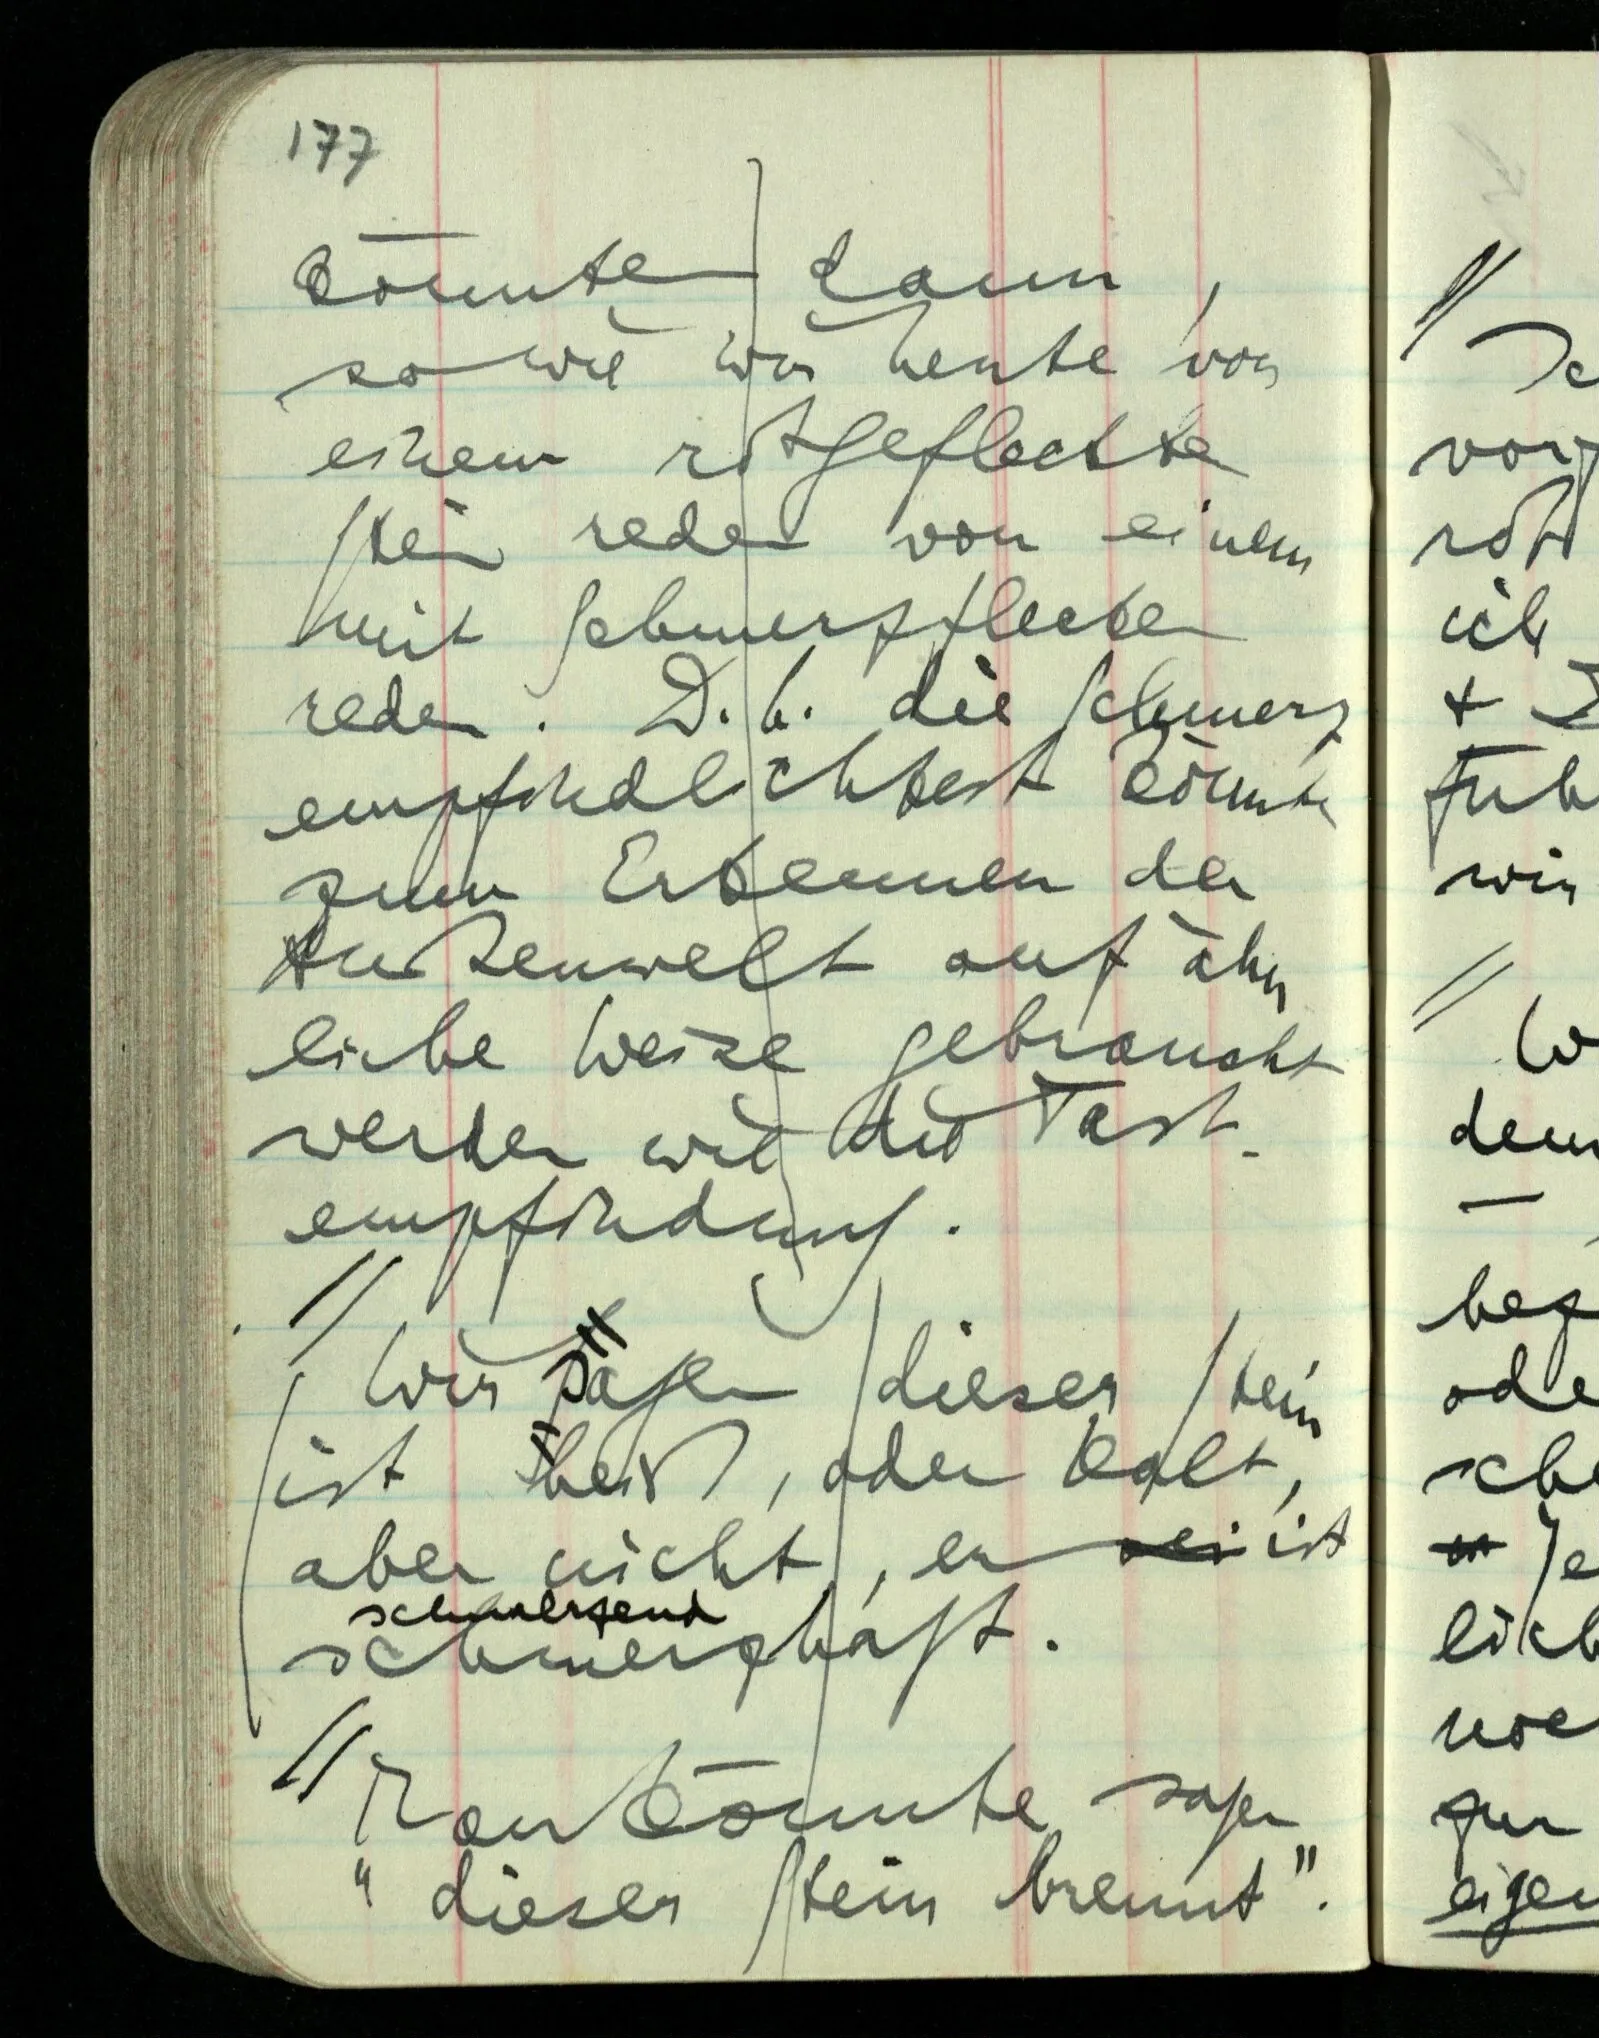 177
könnten dann,
so wie wir heute von
einem rotgefleckten
Stein reden von einem
mit Schmerzflecken
reden. D.h. die Schmerz
empfindlichkeit könnte
zum Erkennen der
Außenwelt auf ähn
liche Weise gebraucht
werden wie die Tast-
empfindung.
// Wir sagen dieser Stein
ist heiß, oder kalt,
aber nicht, er sei ist
schmerzend
schmerzhaft.
// Man könnte sagen
"dieser Stein brennt".
//
vor
rot
ich
+
wir
//
W
dem
—
ode
sche
noc
zur
eigen